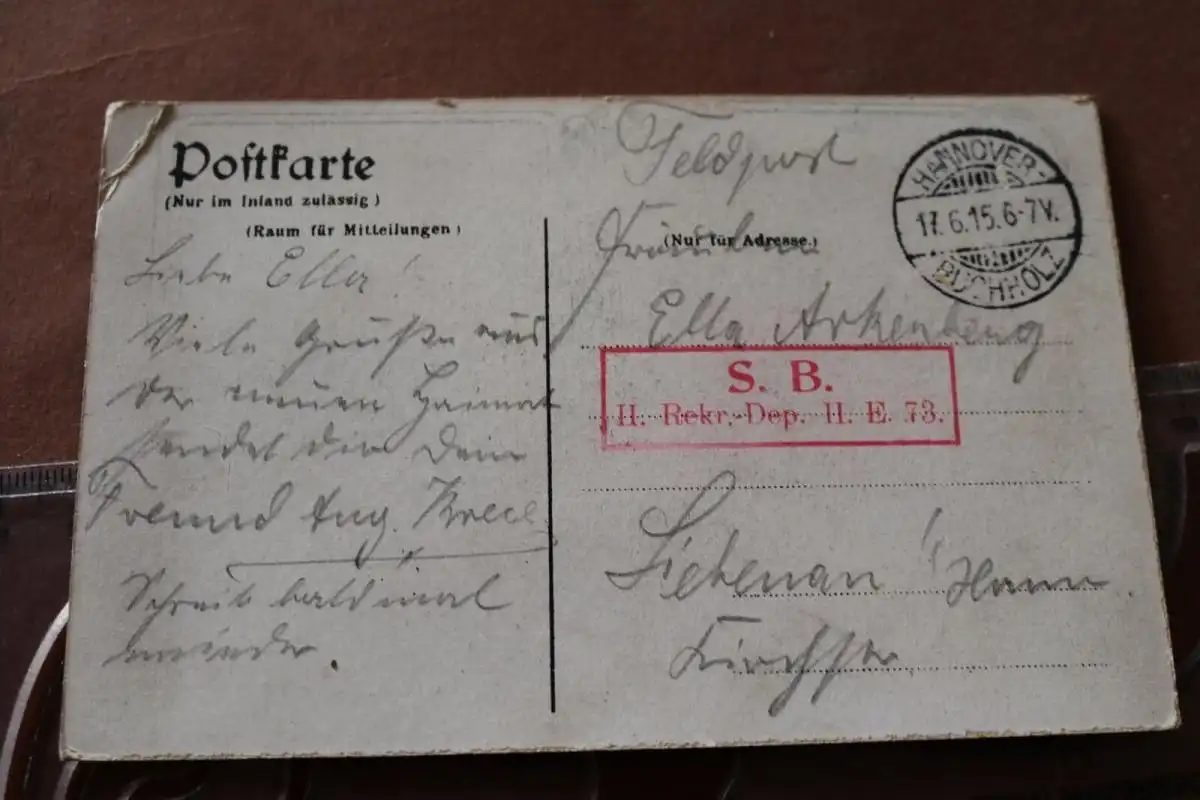 Postkarte
(Nur im Inland zulässig)
(Raum für Mitteilungen)
Liebe Ella!
Viele Grüße aus
der neuen Heimat
sendet dir dein
Freund Aug.
Schreib bald mal
wieder.
Feldpost
(Nur für Adresse.)
Fräulein
Ella Arkenberg
S. B.
II. Rekr.-Dep. II. E. 73.
Liebenau! Hann
Kirchstr
HANNOVER-
17.6.15.6-7V.
BUCHHOLZ